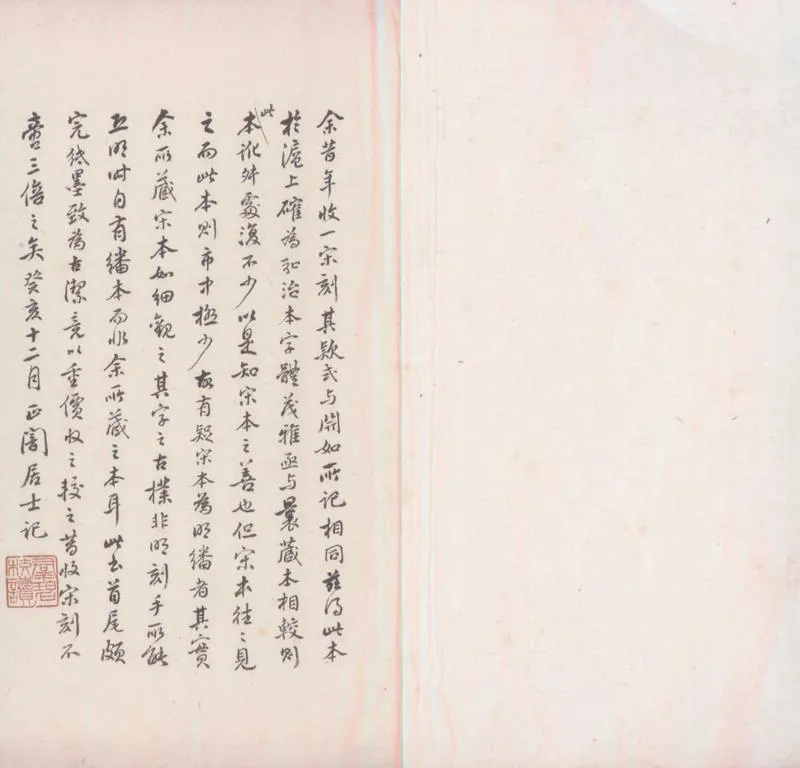 余昔年收一宋刻其款式与開如所記相同茲得此本
於滬上確為弘治本字體茂雅亟与曩藏本相較則
此
本訛舛處復不少以是知宋本之善也但宋本往〻見
之而此本則市中極少故有疑宋本為明繙者其實
余所藏宋本如細觀之其字之古樸非明刻手所能
且明時自有繙本而非余所藏之本耳此書首尾頗
完紙墨致為古潔竟以重價收之較之昔收宋刻不
啻三倍之矣癸亥十二月正闇居士記
群碧校讀